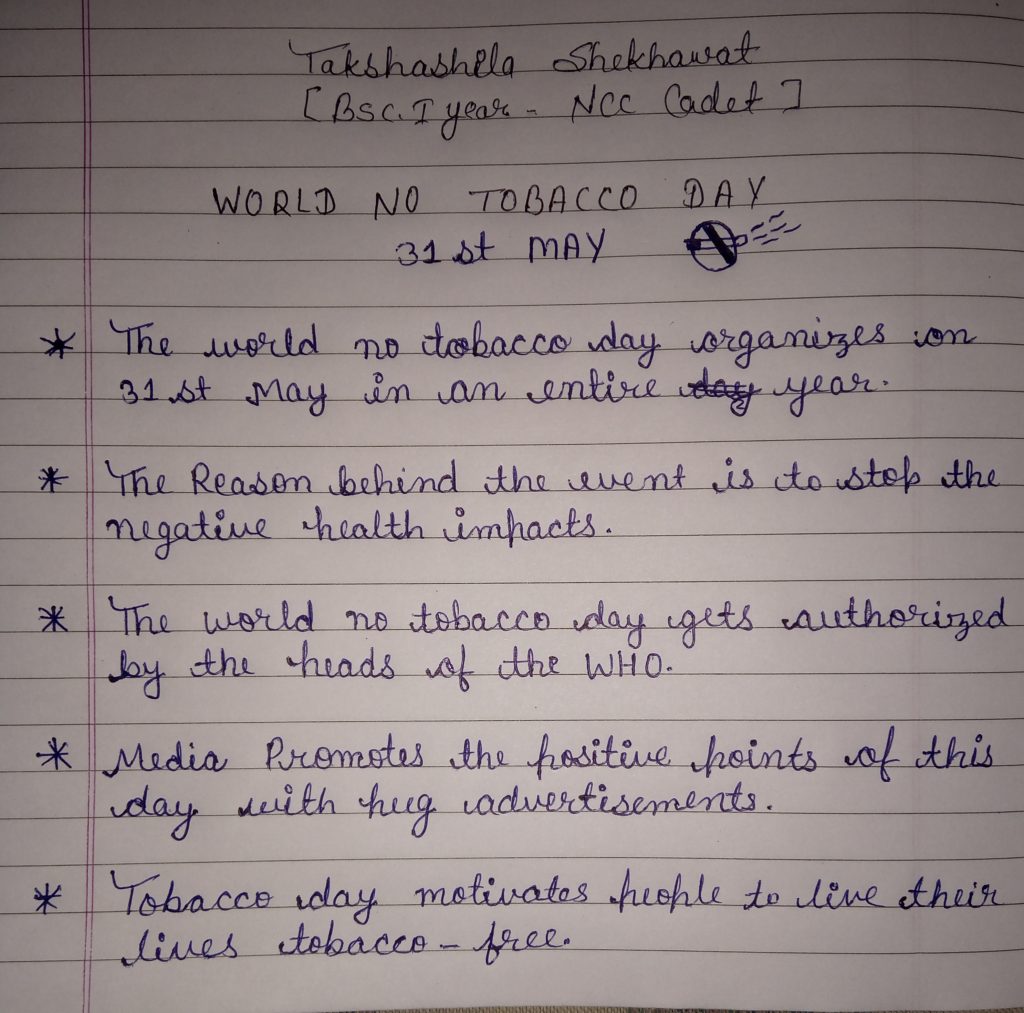 Takshashila Shekhawat
[Bsc. I year - NCC Cadet]
WORLD NO TOBACCO DAY
31st MAY
* The world no tobacco day organizes on
31st May in an entire year.
* The Reason behind the event is to stop the
negative health impacts.
* The world no tobacco day gets authorized
by the heads of the WHO.
* Media Promotes the positive points of this
day with hug advertisements.
* Tobacco day motivates people to live their
lives tobacco-free.